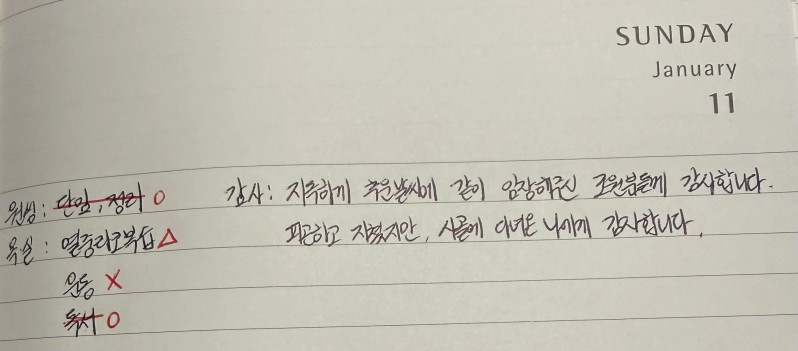 SUNDAY
January
11
원씽: 단임, 정리 O 감사: 지독하게 추운날씨에 같이 임장해주신 조원분들께 감사합니다.
목실: 열중라코복습 △ 피곤하고 지쳤지만, 시골에 다녀온 나에게 감사합니다.
운동 X
독서 O